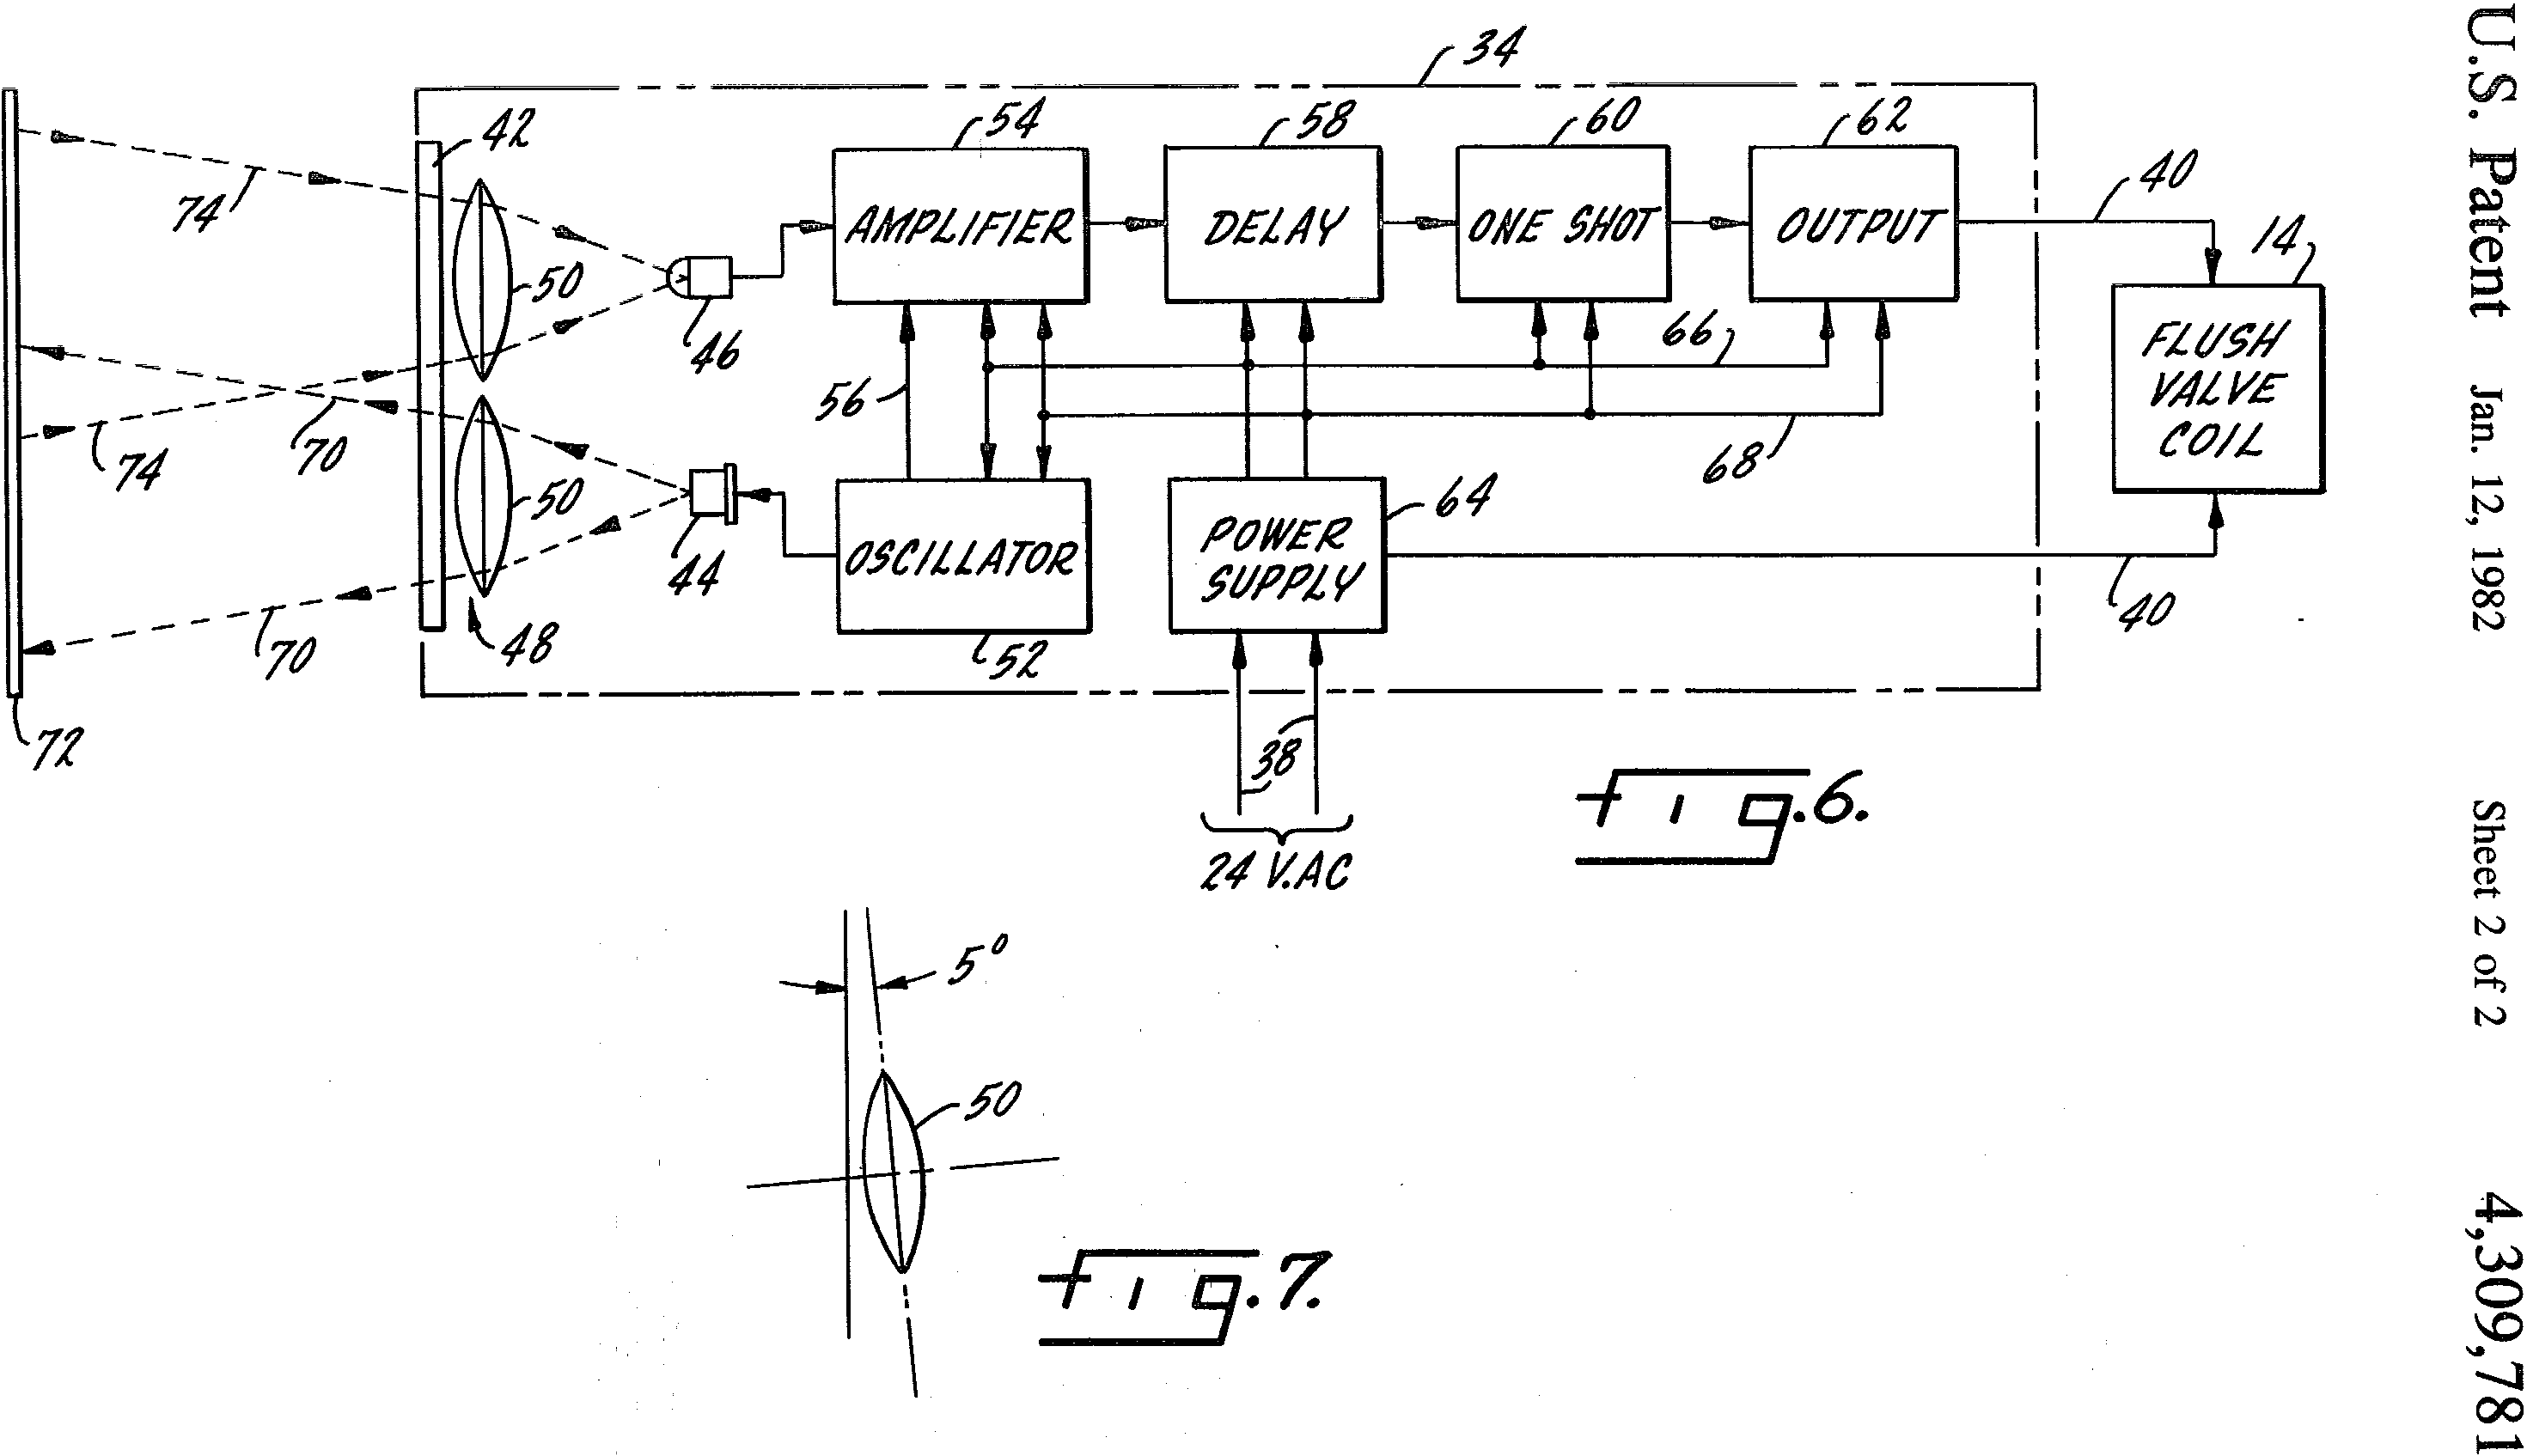 U.S. Patent Jan. 12, 1982 Sheet 2 of 2 4,309,781
34
42
54
58
60
62
40
74
AMPLIFIER
DELAY
ONE SHOT
OUTPUT
14
50
46
66
FLUSH
VALVE
COIL
56
74
70
68
50
44
64
OSCILLATOR
POWER
SUPPLY
40
70
48
52
72
38
24 V.AC
fig.6.
5°
50
fig.7.